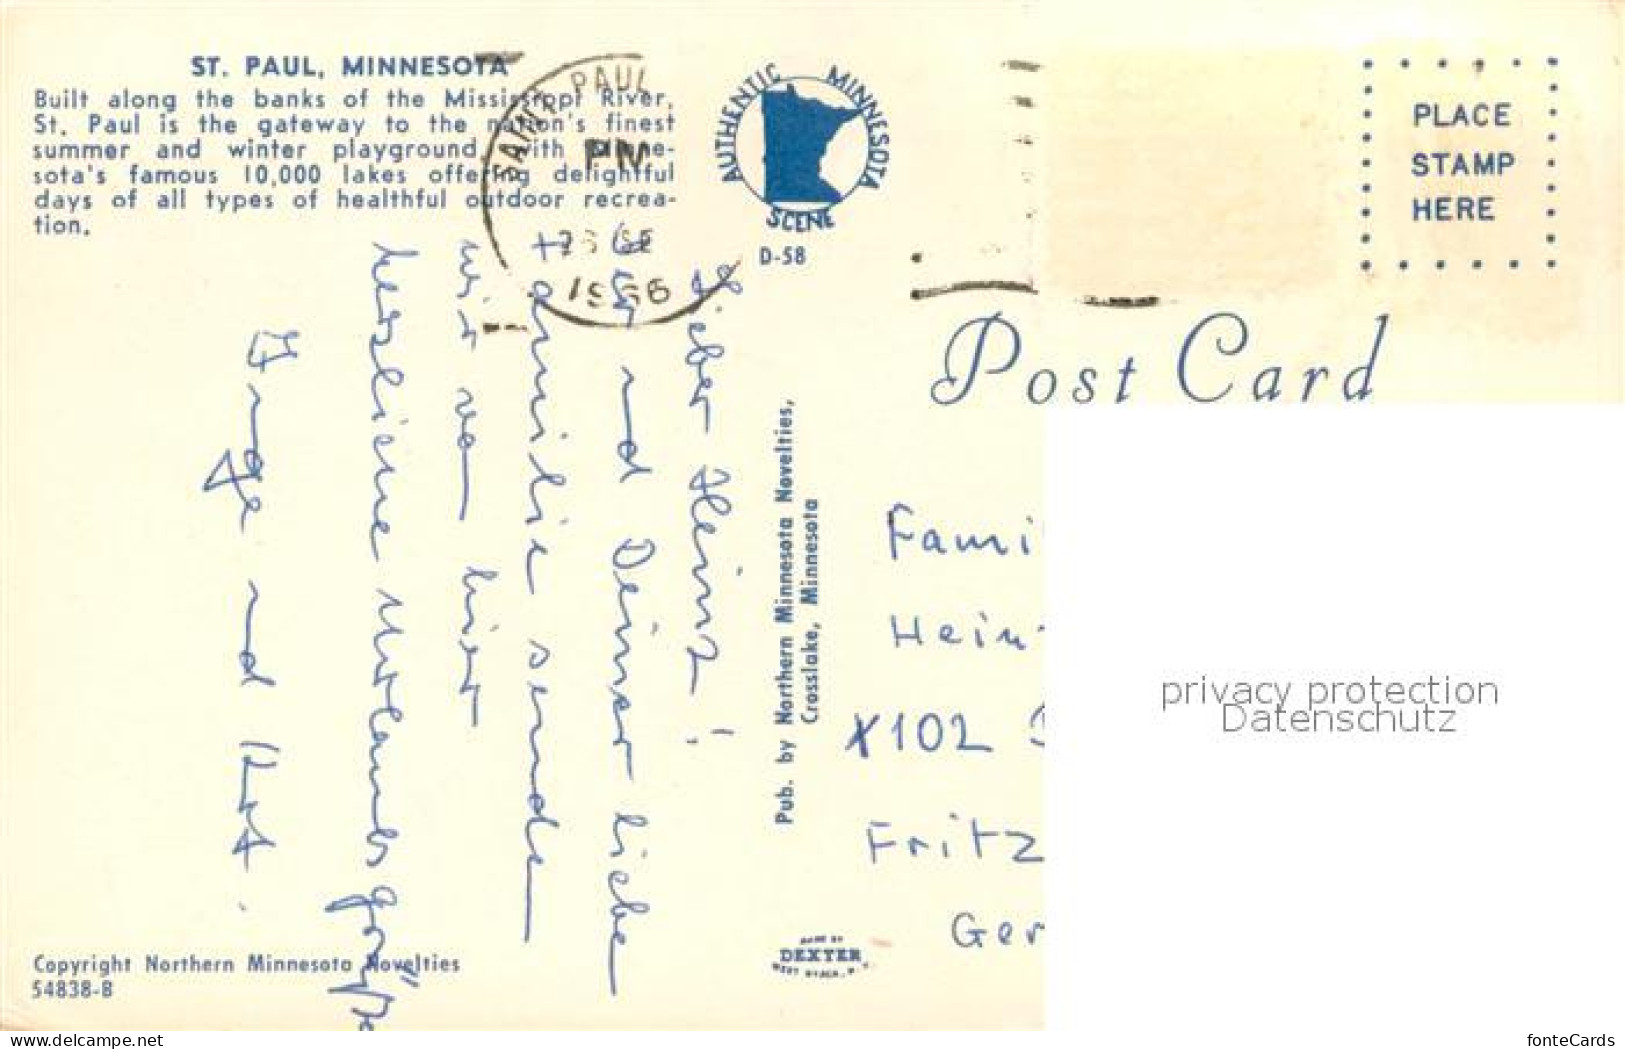 ST. PAUL, MINNESOTA
Built along the banks of the Mississippi River,
St. Paul is the gateway to the nation's finest
summer and winter playground, with Minne-
sota's famous 10,000 lakes offering delightful
days of all types of healthful outdoor recrea-
tion.
SAINT PAUL
PM
1966
AUTHENTIC MINNESOTA
SCENE
D-58
PLACE
STAMP
HERE
Post Card
Lieber Heinz!
Dir und Deiner lieben
Familie senden
wir von hier
herzliche Urlaubsgrüße
Inge und
Pub. by Northern Minnesota Novelties,
Crosslake, Minnesota
Fami
Hein
X102
Fritz
Ger
privacy protection
Datenschutz
MADE BY
DEXTER
WEST NYACK, N.Y.
Copyright Northern Minnesota Novelties
54838-B
www.delcampe.net
fonteCards